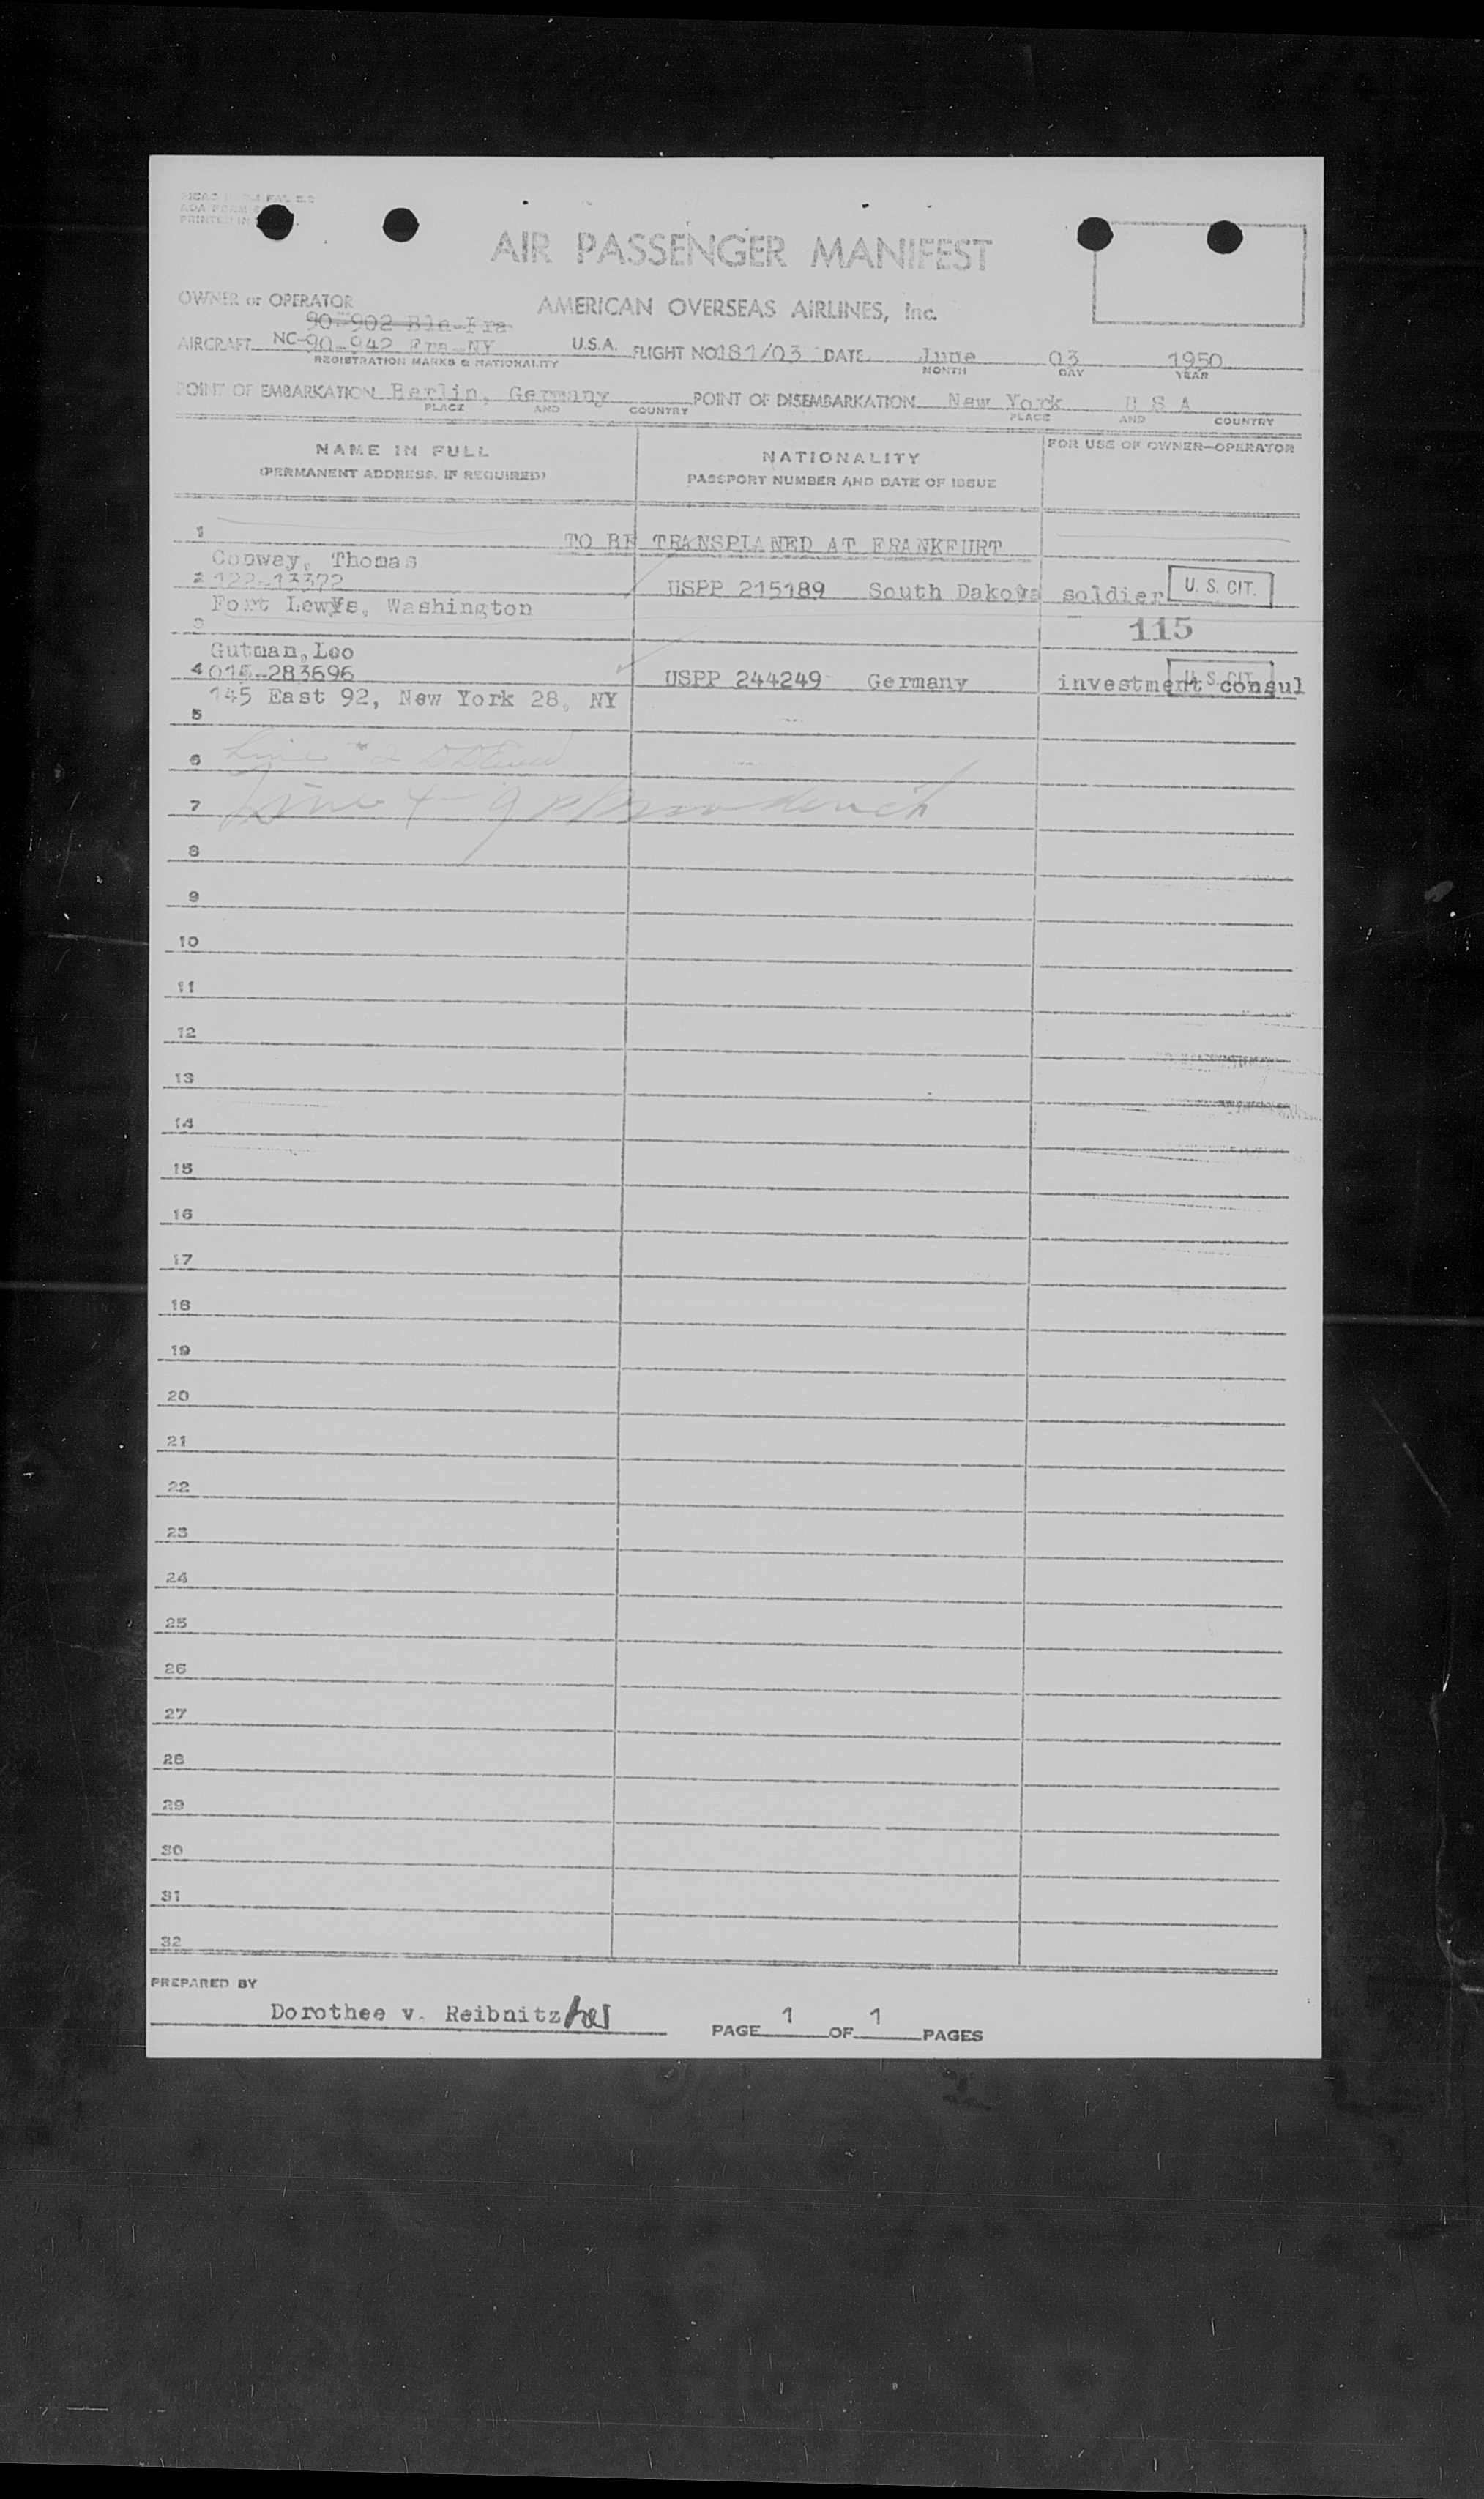 AIR PASSENGER MANIFEST
OWNER or OPERATOR AMERICAN OVERSEAS AIRLINES, Inc.
90-902 Bln-Fra
AIRCRAFT NC-90-942 Fra-NY U.S.A. FLIGHT NO 181/03 DATE June 03 1950
REGISTRATION MARKS & NATIONALITY MONTH DAY YEAR
POINT OF EMBARKATION Berlin, Germany POINT OF DISEMBARKATION New York U S A
PLACE AND COUNTRY PLACE AND COUNTRY
NAME IN FULL NATIONALITY FOR USE OF OWNER-OPERATOR
(PERMANENT ADDRESS, IF REQUIRED) PASSPORT NUMBER AND DATE OF ISSUE
1 TO BE TRANSPLANED AT FRANKFURT
Conway, Thomas
2 122-13372 USPP 215189 South Dakota soldier U. S. CIT.
Fort Lewis, Washington
3 115
Gutman, Leo
4 015-283696 USPP 244249 Germany investment consul U. S. CIT.
145 East 92, New York 28, NY
5
6 Line
7 Line 4
8
9
10
11
12
13
14
15
16
17
18
19
20
21
22
23
24
25
26
27
28
29
30
31
32
PREPARED BY
Dorothee v. Reibnitz
PAGE 1 OF 1 PAGES